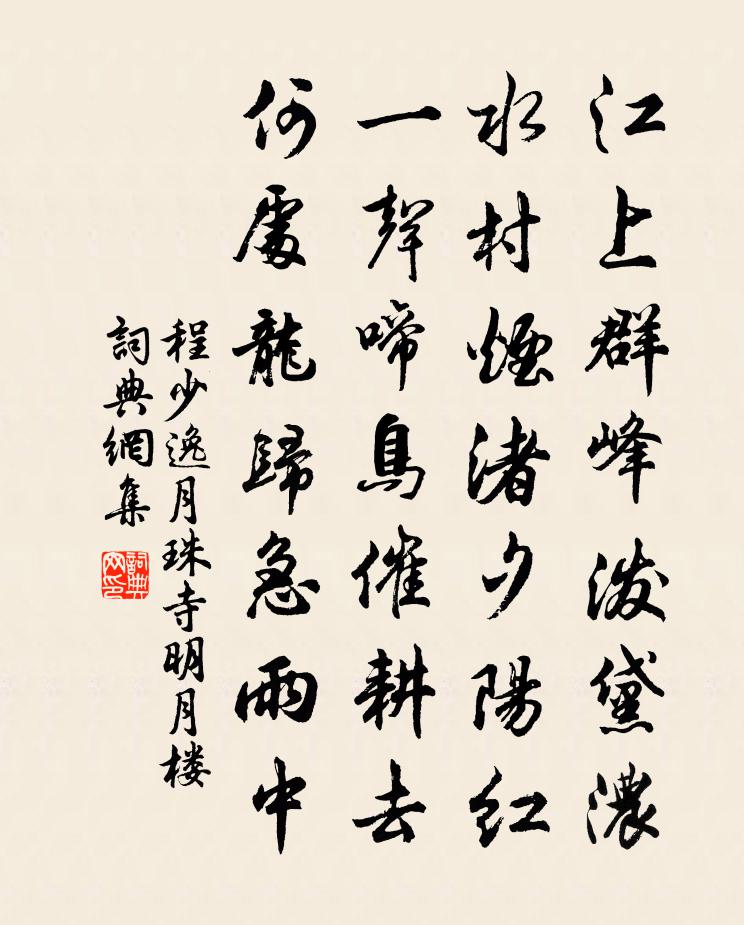 江上群峰泼黛濃
水村煙渚夕陽紅
一聲啼鳥催耕去
何處龍歸急雨中
程少逸月珠寺明月楼
詞典網集
詞典网印